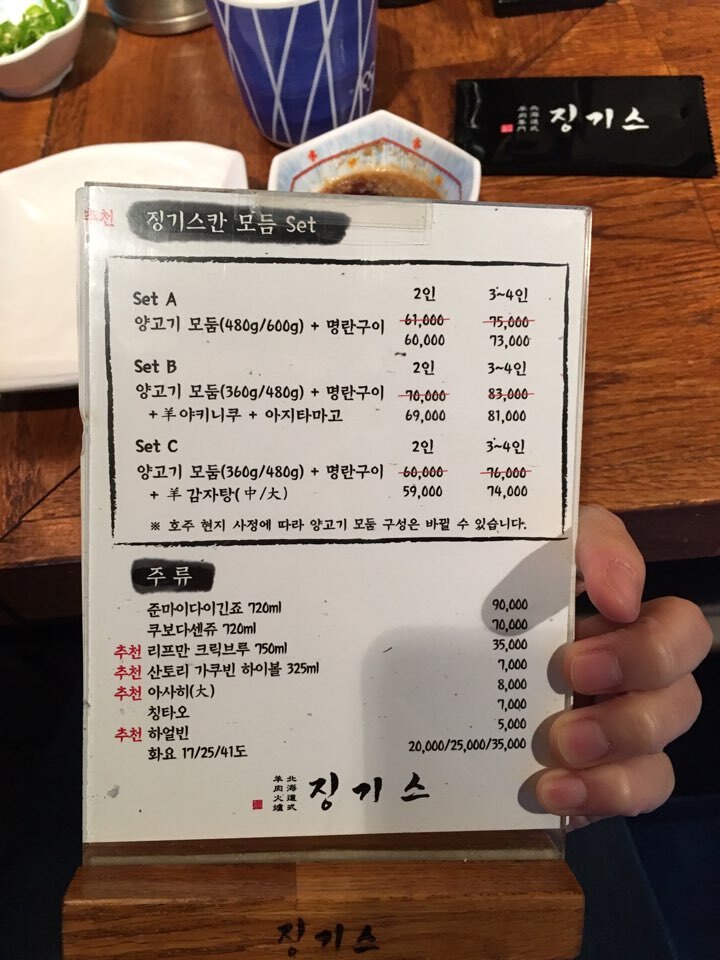 北海道式
羊肉專門
징기스
추천 징기스칸 모듬 Set
Set A 2인 3~4인
양고기 모둠(480g/600g) + 명란구이 61,000 75,000
60,000 73,000
Set B 2인 3~4인
양고기 모둠(360g/480g) + 명란구이 70,000 83,000
+ 羊야키니쿠 + 아지타마고 69,000 81,000
Set C 2인 3~4인
양고기 모둠(360g/480g) + 명란구이 60,000 76,000
+ 羊 감자탕(中/大) 59,000 74,000
※ 호주 현지 사정에 따라 양고기 모둠 구성은 바뀔 수 있습니다.
주류
준마이다이긴죠 720ml 90,000
쿠보다센쥬 720ml 70,000
추천 리프만 크릭브루 750ml 35,000
추천 산토리 가쿠빈 하이볼 325ml 7,000
추천 아사히(大) 8,000
칭타오 7,000
추천 하얼빈 5,000
화요 17/25/41도 20,000/25,000/35,000
北海道式
羊肉火爐
징기스
징기스